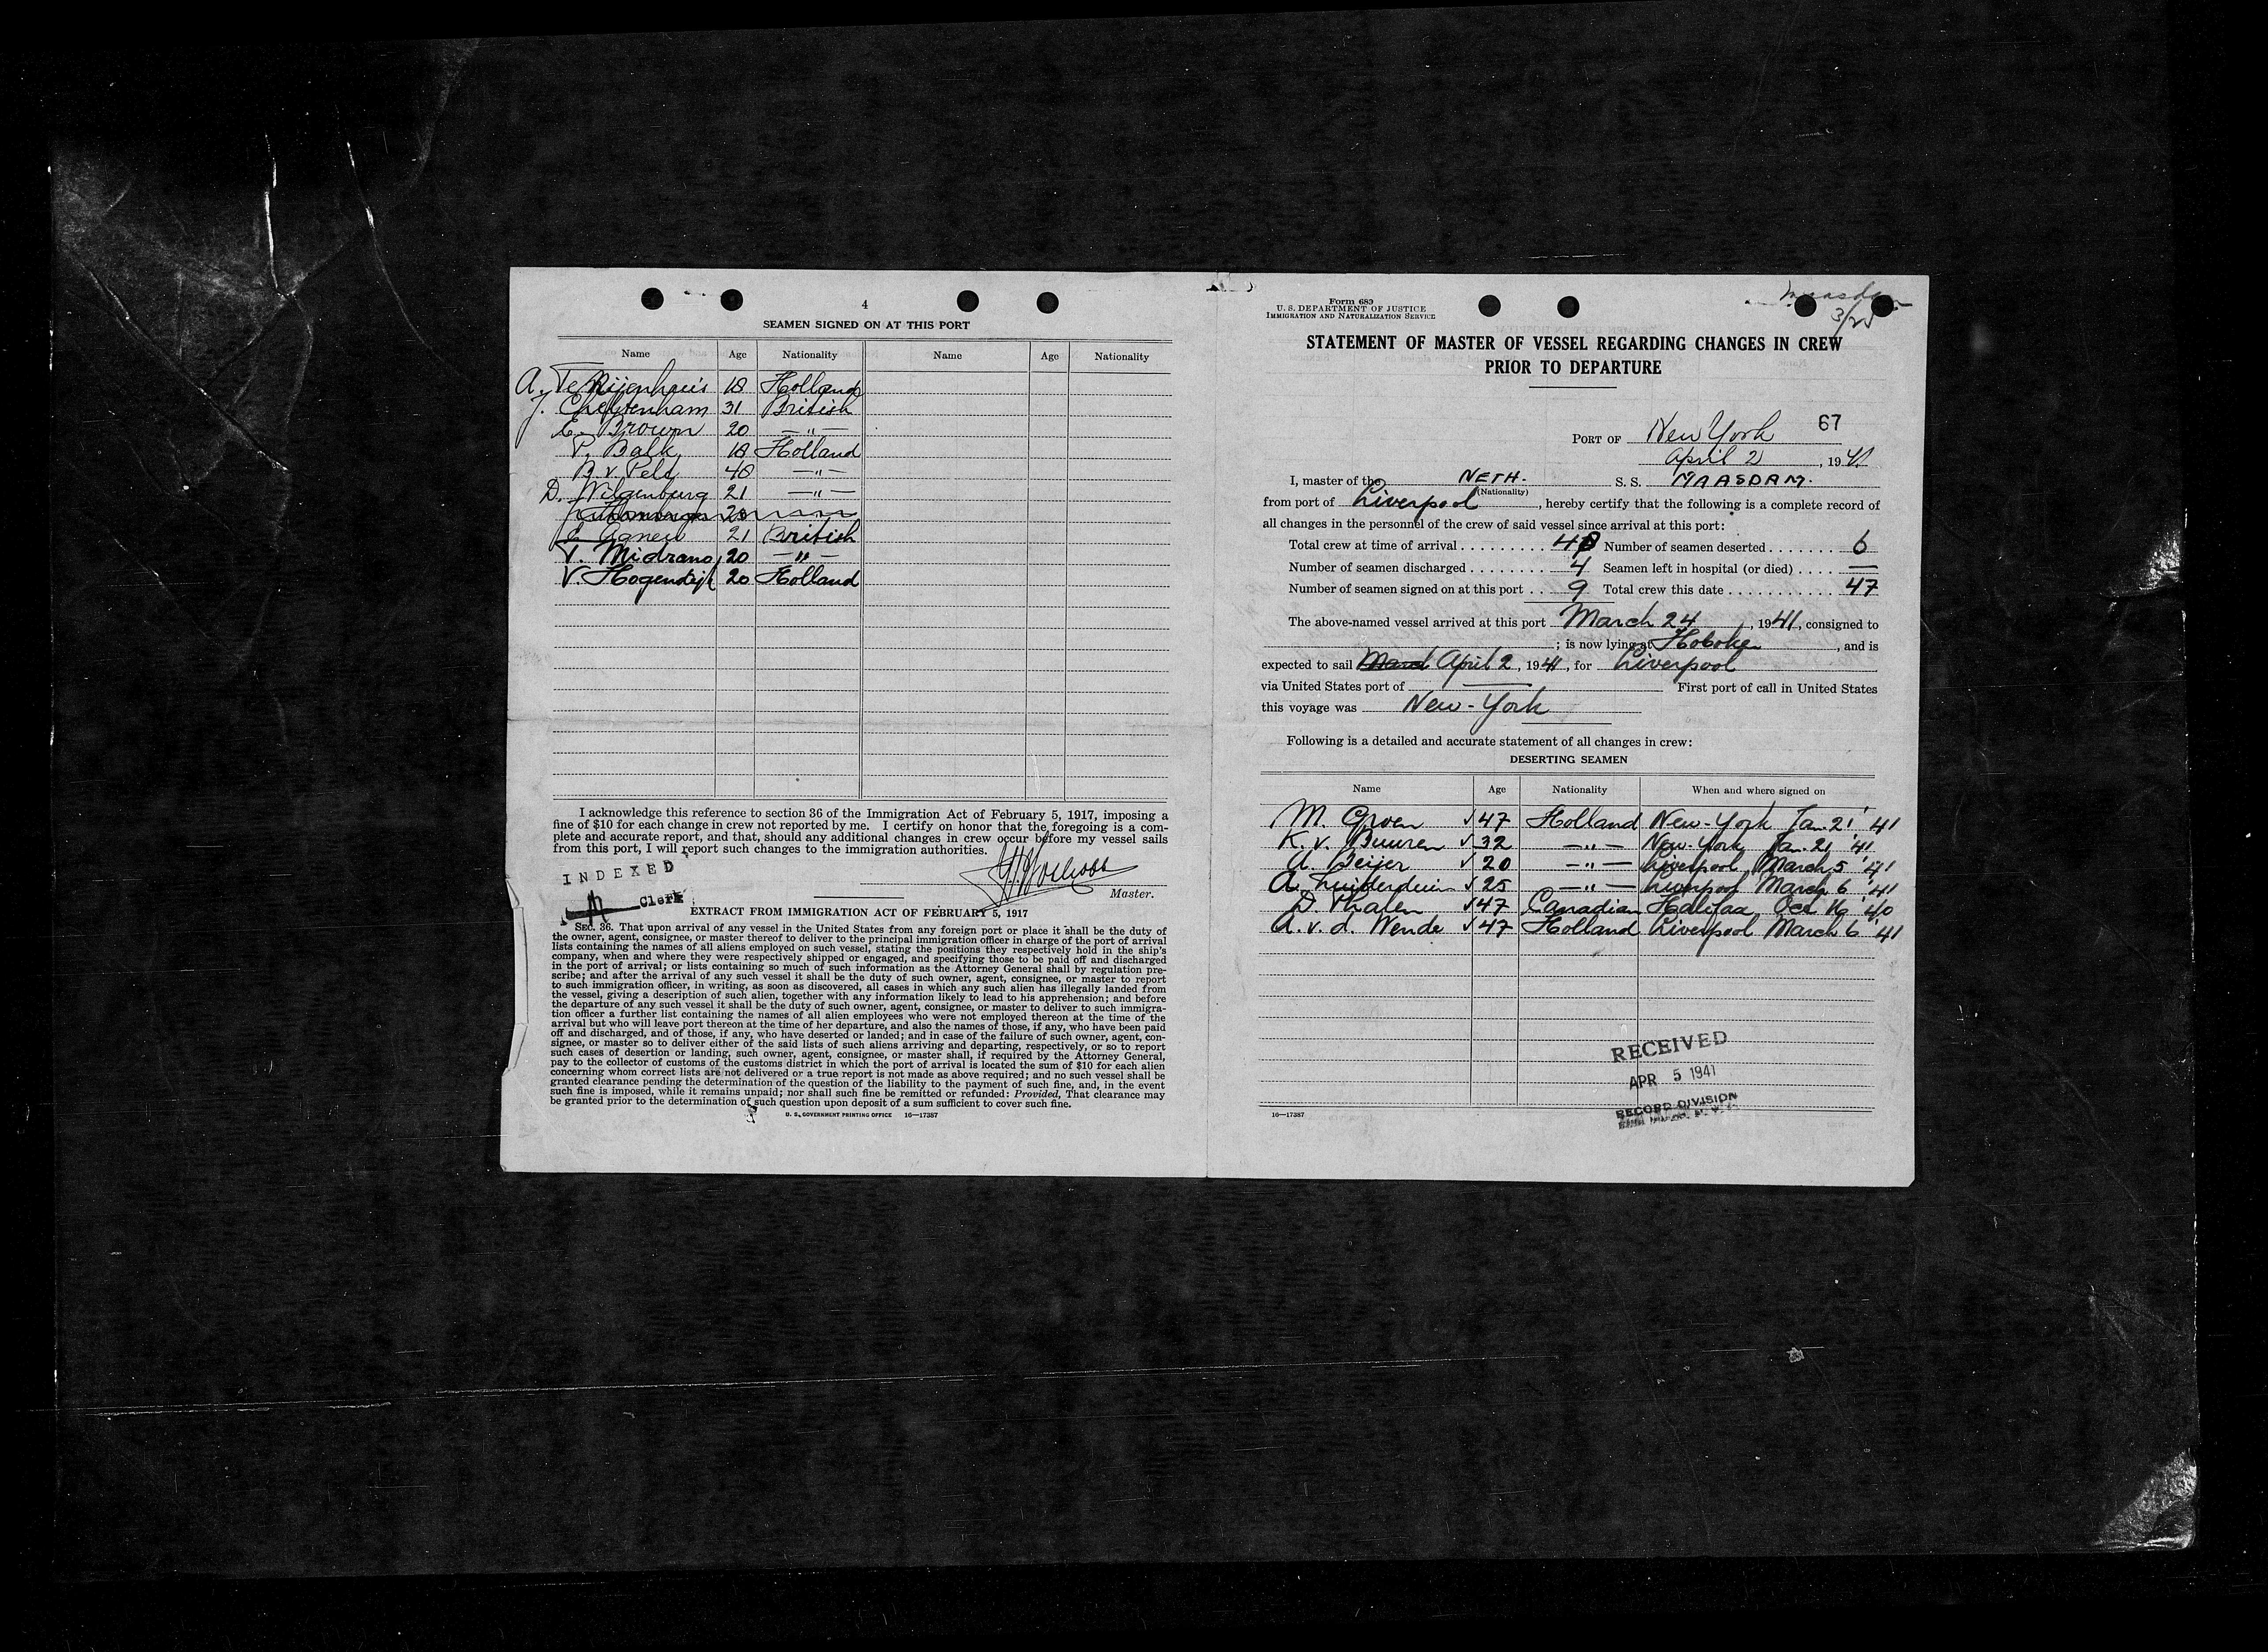 4
SEAMEN SIGNED ON AT THIS PORT
Name Age Nationality Name Age Nationality
A. Te Nijenhuis 18 Holland
J. Cheltenham 31 British
E. Brown 20 —"—
P. Balk 18 Holland
B. v. Pelt 48 —"—
D. Wilgenburg 21 —"—
E. Agnew 21 British
T. Midrano 20 —"—
V. Hogendijk 20 Holland
I acknowledge this reference to section 36 of the Immigration Act of February 5, 1917, imposing a
fine of $10 for each change in crew not reported by me. I certify on honor that the foregoing is a com-
plete and accurate report, and that, should any additional changes in crew occur before my vessel sails
from this port, I will report such changes to the immigration authorities.
INDEXED
Clerk
Master.
EXTRACT FROM IMMIGRATION ACT OF FEBRUARY 5, 1917
SEC. 36. That upon arrival of any vessel in the United States from any foreign port or place it shall be the duty of
the owner, agent, consignee, or master thereof to deliver to the principal immigration officer in charge of the port of arrival
lists containing the names of all aliens employed on such vessel, stating the positions they respectively hold in the ship's
company, when and where they were respectively shipped or engaged, and specifying those to be paid off and discharged
in the port of arrival; or lists containing so much of such information as the Attorney General shall by regulation pre-
scribe; and after the arrival of any such vessel it shall be the duty of such owner, agent, consignee, or master to report
to such immigration officer, in writing, as soon as discovered, all cases in which any such alien has illegally landed from
the vessel, giving a description of such alien, together with any information likely to lead to his apprehension; and before
the departure of any such vessel it shall be the duty of such owner, agent, consignee, or master to deliver to such immigra-
tion officer a further list containing the names of all alien employees who were not employed thereon at the time of the
arrival but who will leave port thereon at the time of her departure, and also the names of those, if any, who have been paid
off and discharged, and of those, if any, who have deserted or landed; and in case of the failure of such owner, agent, con-
signee, or master so to deliver either of the said lists of such aliens arriving and departing, respectively, or so to report
such cases of desertion or landing, such owner, agent, consignee, or master shall, if required by the Attorney General,
pay to the collector of customs of the customs district in which the port of arrival is located the sum of $10 for each alien
concerning whom correct lists are not delivered or a true report is not made as above required; and no such vessel shall be
granted clearance pending the determination of the question of the liability to the payment of such fine, and, in the event
such fine is imposed, while it remains unpaid; nor shall such fine be remitted or refunded: Provided, That clearance may
be granted prior to the determination of such question upon deposit of a sum sufficient to cover such fine.
U. S. GOVERNMENT PRINTING OFFICE 16—17387
Form 689
U. S. DEPARTMENT OF JUSTICE
IMMIGRATION AND NATURALIZATION SERVICE
Maasdam
3/25
STATEMENT OF MASTER OF VESSEL REGARDING CHANGES IN CREW
PRIOR TO DEPARTURE
PORT OF New York 67
April 2, 1941
I, master of the NETH. S. S. MAASDAM.
(Nationality)
from port of Liverpool, hereby certify that the following is a complete record of
all changes in the personnel of the crew of said vessel since arrival at this port:
Total crew at time of arrival 48 Number of seamen deserted 6
Number of seamen discharged 4 Seamen left in hospital (or died) —
Number of seamen signed on at this port 9 Total crew this date 47
The above-named vessel arrived at this port March 24, 1941, consigned to
; is now lying at Hoboken, and is
expected to sail March April 2, 1941, for Liverpool
via United States port of — First port of call in United States
this voyage was New-York
Following is a detailed and accurate statement of all changes in crew:
DESERTING SEAMEN
Name Age Nationality When and where signed on
M. Groen √ 47 Holland New-York Jan. 21 '41
K. v. Buuren √ 32 —"— New-York Jan. 21 '41
A. Beijer √ 20 —"— Liverpool March 5 '41
A. Luijderduin √ 25 —"— Liverpool March 6 '41
D. Phalen √ 47 Canadian Halifax Oct 16 '40
A. v. d. Wende √ 47 Holland Liverpool March 6 '41
RECEIVED
APR 5 1941
RECORD DIVISION
16—17387